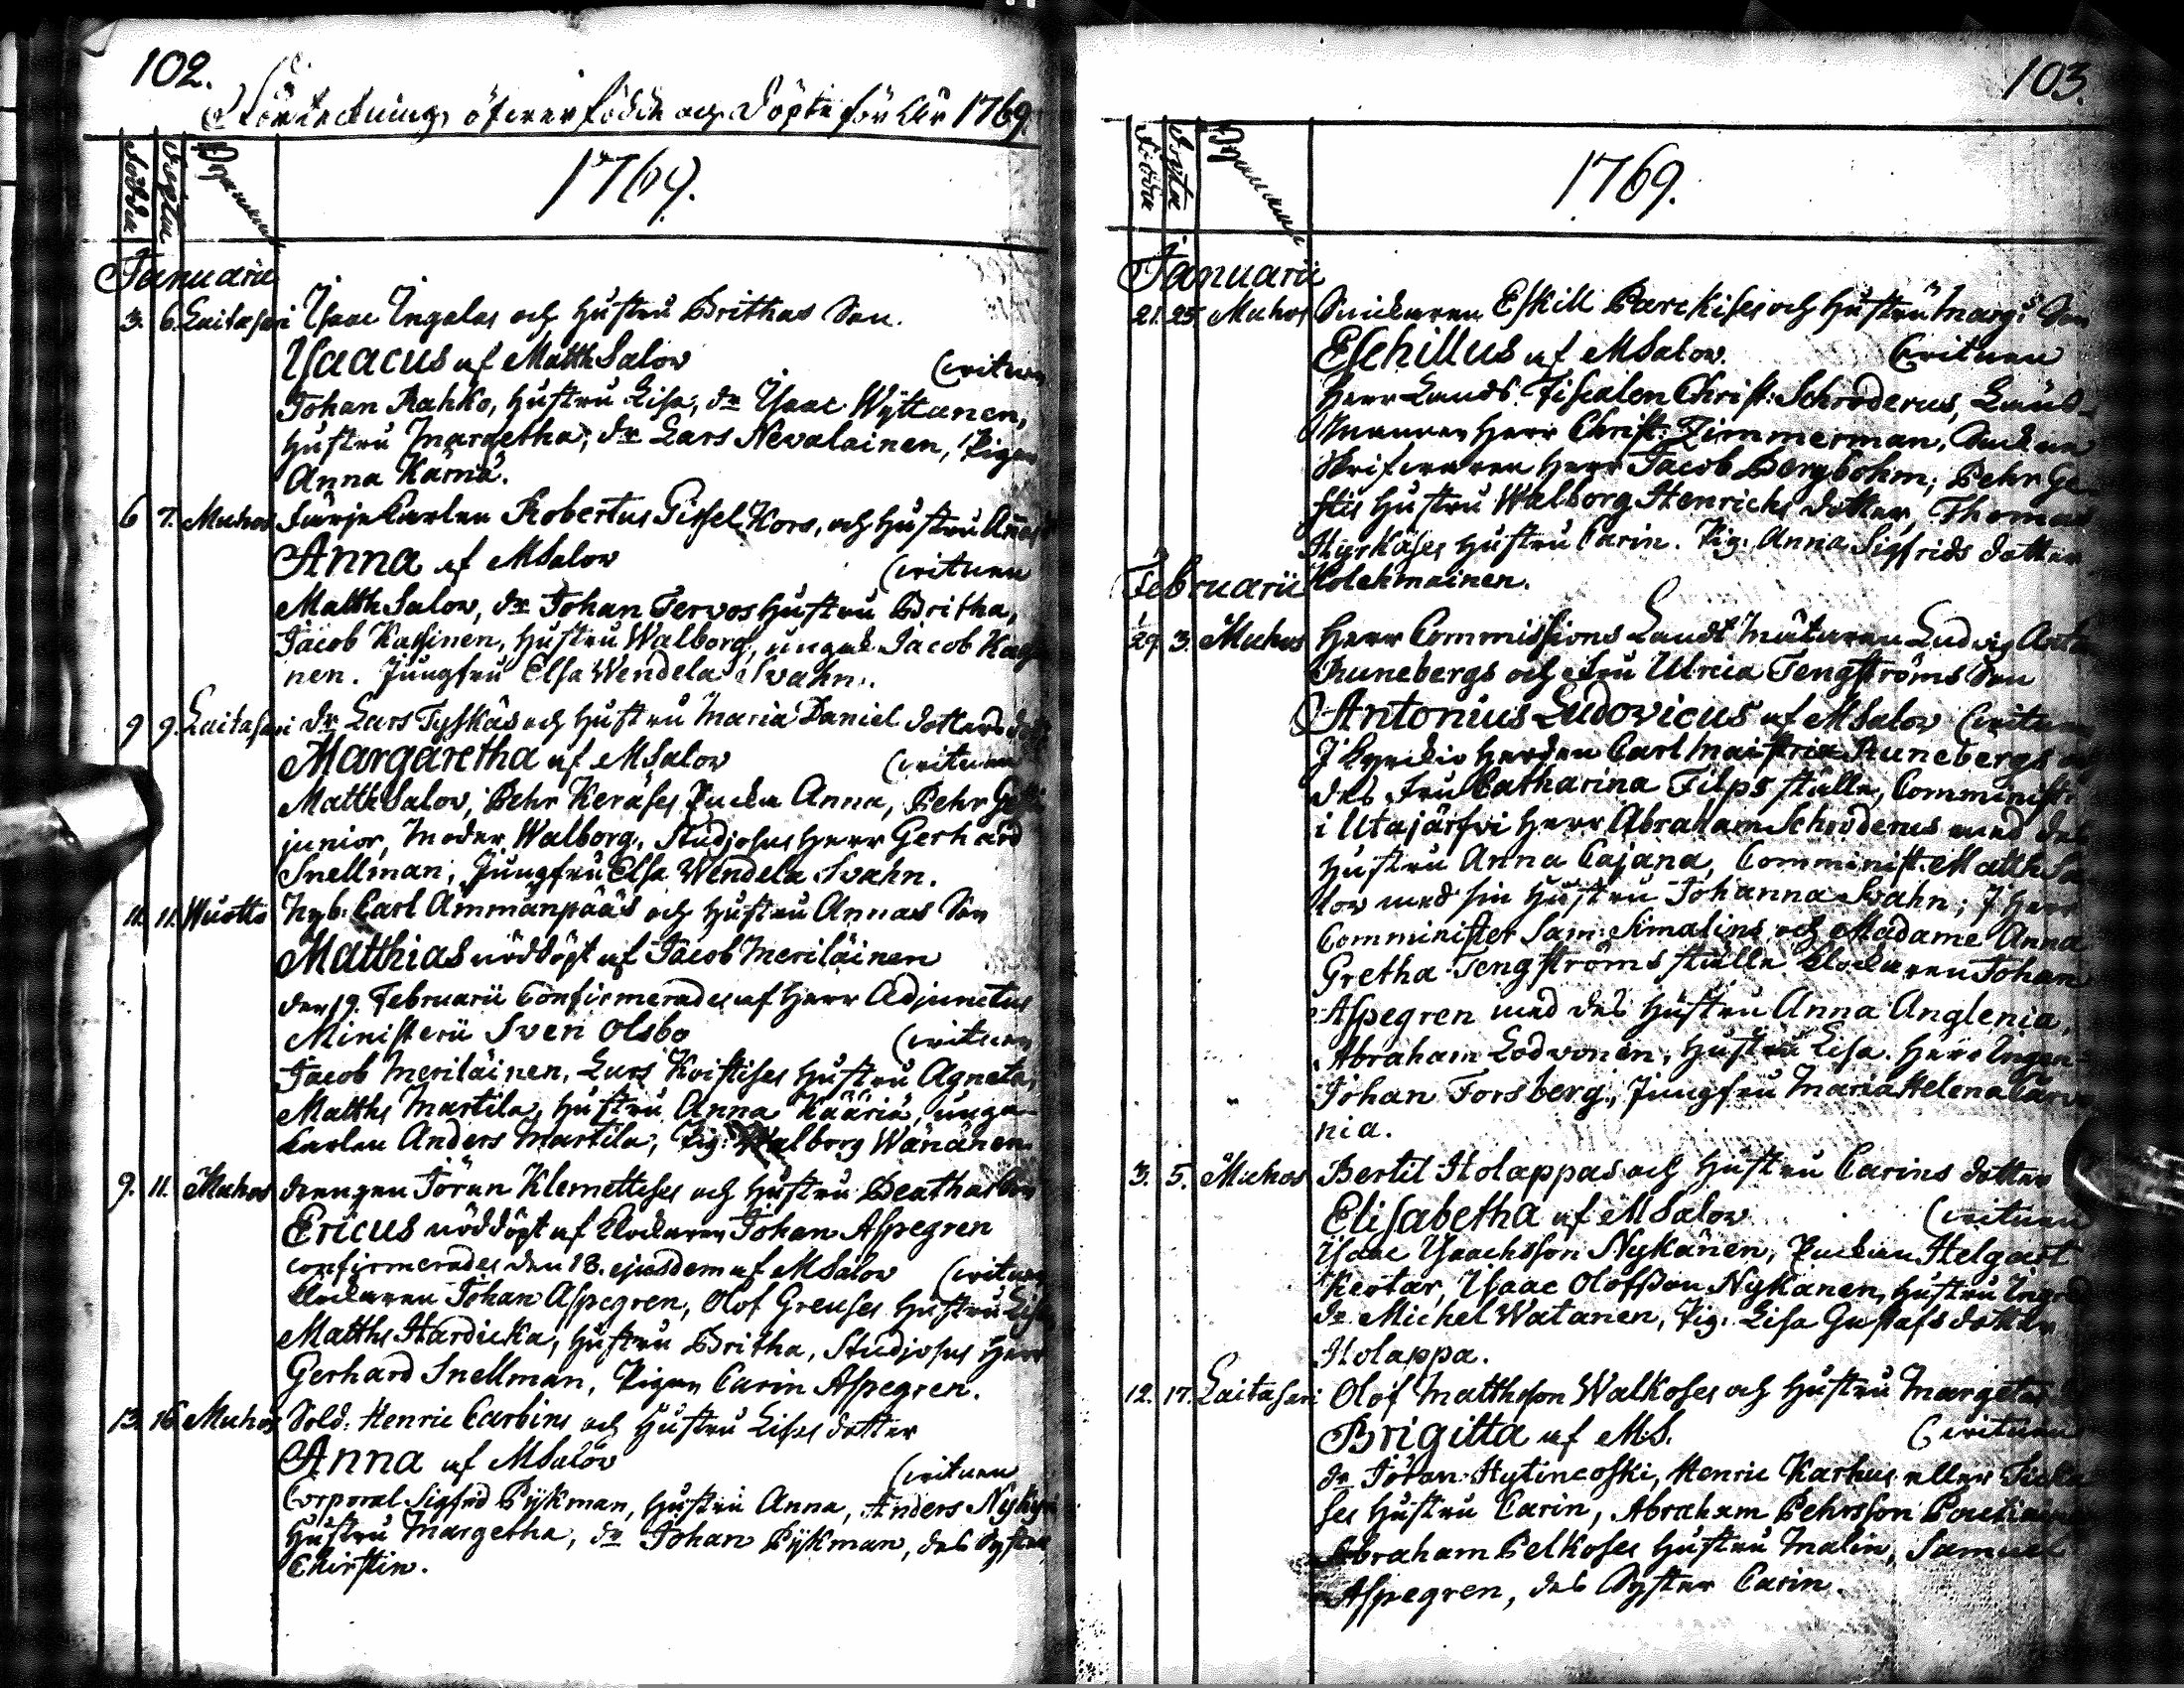 102.
Förteckning öfwer födde och döpte för År 1769.
Födde
Döpte
Byarnas namn
1769.
Januarii
3. 6. Laitasari Isaac Ingalas och hustru Brithas Son
Isaacus af Matth Salov (writuen
Johan Rahko, hustru Lisa, dr Isaac Wÿttanen,
hustru Margetha, dr Lars Nevalainen, Pigan
Anna Karna.
6 7. Muhos Färjekarlen Robertus Pissel Kors, och hustru
Anna af M Salov (writuen
Matth Salov, dr Johan Tervos hustru Britha,
Jacob Kassinen, hustru Walborg, ungk. Jacob
nen. Jungfru Elsa Wendela Svahn.
9 9. Laitasari dr Lars Tyskäs och hustru Maria Daniels dotters
Margaretha af M Salov (writuen
Matth Salov, Pehr Keräses Enckia Anna, Pehr
junior, Moder Walborg, Studiosus Herr Gerhard
Snellman, Jungfru Elsa Wendela Svahn.
11. 11. Wuotto Nyb. Carl Ammänpääs och hustru Annas Son
Matthias nöddöpt af Jacob Meriläinen
den 19. Februarii Confirmerades af Herr Adjunctus
Ministerii Sven Olsbo (writuen
Jacob Meriläinen, Lars Kvistises hustru Agneta,
Matths Martila, hustru Anna Kääriä, unga
karlen Anders Martila, Pig. Walborg Wänänen.
9. 11. Muhos drengen Jöran Klemettises och hustru Beathas Son
Ericus nöddöpt af Klockaren Johan Aspegren
confirmerades den 18. ejusdem af M Salov (writuen
Klockaren Johan Aspegren, Olof Greuses hustru Lisa
Matths Hardicka, hustru Britha, Studiosus Herr
Gerhard Snellman, Pigan Carin Aspegren.
13. 16. Muhos Sold. Henric Carbins och hustru Lisas dotter
Anna af M Salov (writuen
Corporal Sigfrid Pÿkman, hustru Anna, Anders
hustru Margetha, dr Johan Pÿkman, des Syster
Chirstin.
103.
Födde
Döpte
Byarnas namn
1769.
Januarii
21. 25. Muhos Snickaren Eskill Parckises och hustru Marg: Son
Eschillus af M Salov. (writuen
Herr Lands Fiscalen Christ: Schroderus, Läns-
mannen Herr Christ: Zimmerman, Sockne
Skrifvaren Herr Jacob Bergbohm, Pehr Ge-
stis hustru Walborg Henrichs dotter, Thomas
Hyrkäses hustru Carin. Pig. Anna Sigfrids dotter
Kolehmainen.
Februarii
29. 3. Muhos Herr Commissions Landt Mätaren Ludvig Anton
Runebergs och Fru Ulrica Tengströms Son
Antonius Ludovicus af M Salov (writuen
I Kyrckio Herden Carl Runebergs och
des Fru Catharina Filps ställe, Comminist:
i Utajärfvi Herr Abraham Schroderus med des
hustru Anna Cajana, Comminist: Matth Sa
lov med sin hustru Johanna Svahn; I Herr
Comminister Sam: Simalins och Madame Anna
Gretha Tengströms ställe Klockaren Johan
Aspegren med des hustru Anna Anglenia,
Abraham Lodvonen, hustru Lisa. Herr Ingen-
Johan Forsberg, Jungfru Maria Helena
nia.
3. 5. Muhos Bertil Holappas och hustru Carins dotter
Elisabetha af M Salov (writuen
Isaac Isaachsson Nykänen, Enckian Helgart
Keotar, Isaac Olofsson Nykänen, hustru
dr Michel Watanen, Pig. Lisa Gustafs dotter
Holappa.
12. 17. Laitasari Olof Matthsson Walkoses och hustru Margetas
Brigitta af M.S. (writuen
dr Jöran Hytincoski, Henric Karhus eller
ses hustru Carin, Abraham Pehrsson
Abraham Pelkoses hustru Malin, Samuel
Aspegren, des Syster Carin.